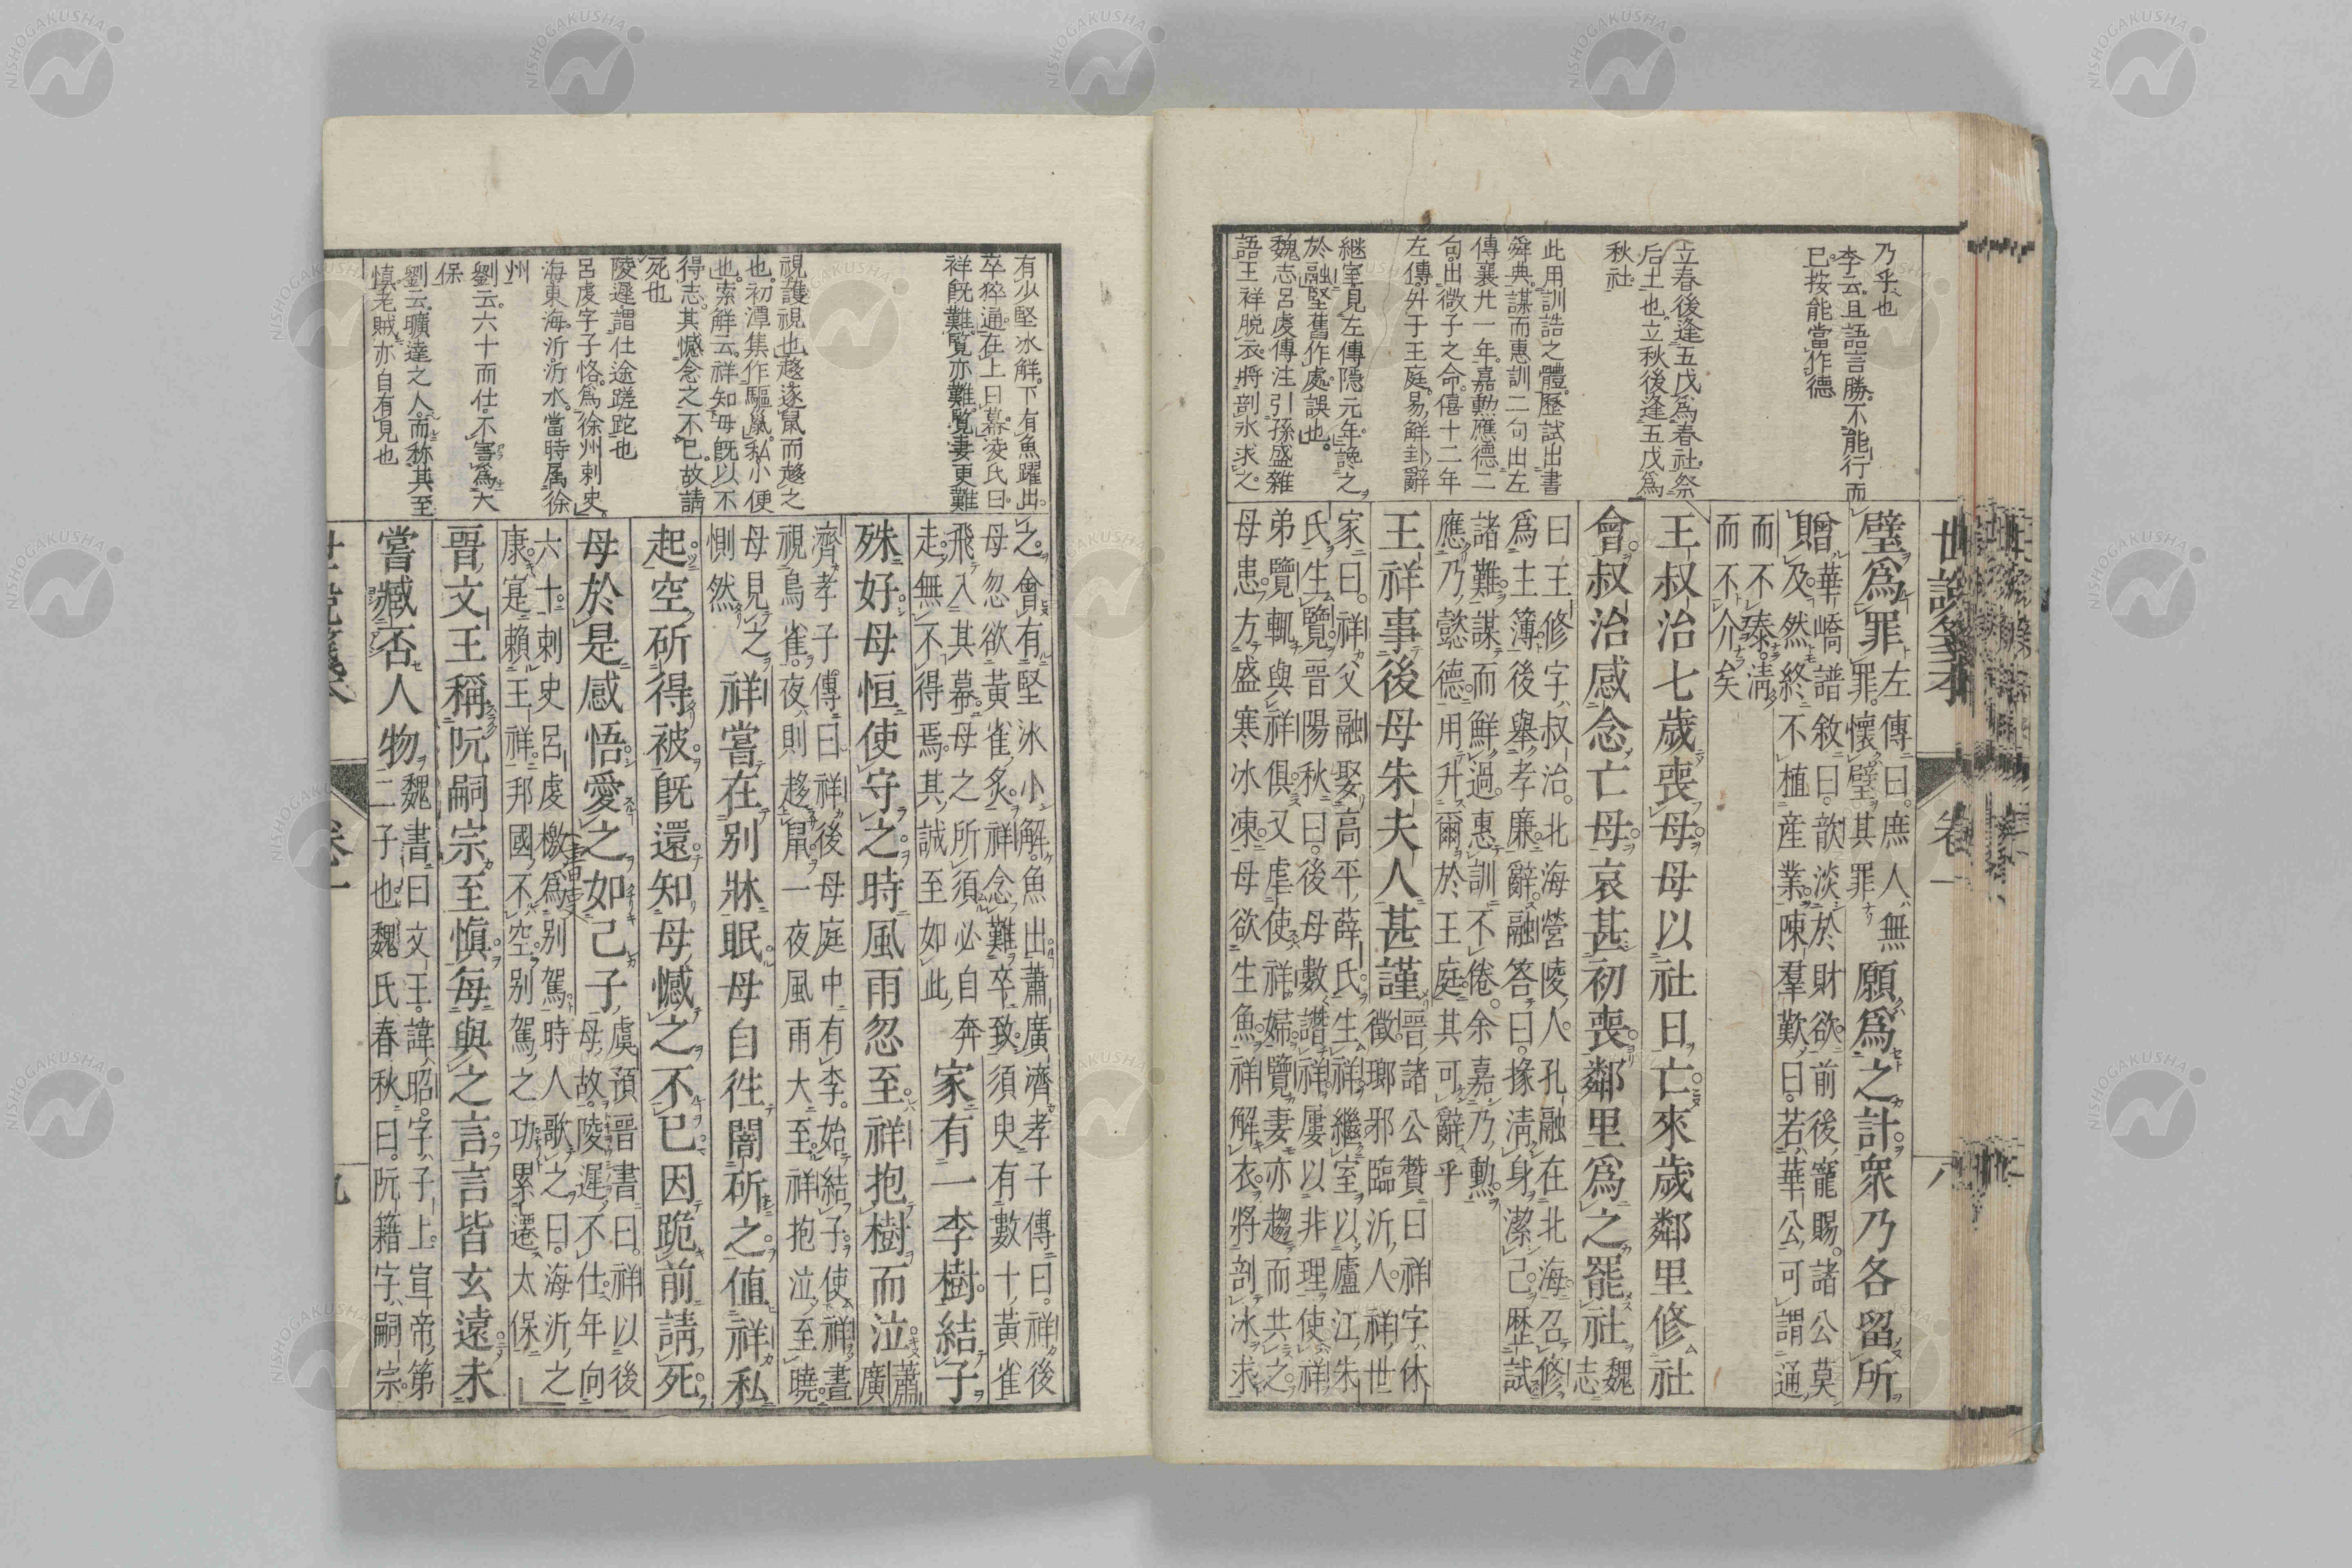 乃乎也
李云且語言勝不能行而
已按能當作德
立春後逢五戊爲春社祭
后土也立秋後逢五戊爲
秋社
此用訓誥之體歷試出書
舜典謀而惠訓二句出左
傳襄廿一年嘉勳應德二
句出微子之命僖十二年
左傳升于王庭易觧卦辭
継室見左傳隠元年讒之
於融堅舊作處誤也
魏志呂虔傳注引孫盛雜
語王祥脱衣將剖氷求之
世說箋本 卷一 八
璧爲罪
左傳曰庶人無
罪懷璧其罪
願爲之計衆乃各留所
贈
華嶠譜敘曰歆淡於財欲前後寵賜諸公莫
及然終不植産業陳羣歎曰若華公可謂通
而不泰淸
而不介矣
王叔治七歲喪母母以社日亡來歲鄰里修社
會叔治感念亡母哀甚初喪鄰里爲之罷社
魏
志
曰王修字叔治北海營陵人孔融在北海召修
爲主簿後舉孝廉辭融答曰掾淸身潔己歷試
諸難謀而鮮過惠訓不倦余嘉乃勳
應乃懿德用升爾於王庭其可辭乎
王祥事後母朱夫人甚謹
晉諸公贊曰祥字休
徵瑯邪臨沂人祥世
家曰祥父融娶高平薛氏生祥繼室以廬江朱
氏生覽晉陽秋曰後母數讒祥屢以非理使祥
弟覽輒與祥俱又虐使祥婦覽妻亦趨而共之
母患方盛寒冰凍母欲生魚祥解衣將剖冰求
有少堅冰觧下有魚躍出
卒猝通在上曰幕凌氏曰
祥旣難覧亦難覧妻更難
視護視也趂逐鼠而趂之
也初潭集作驅鼠私小便
也索觧云祥知毋旣以不
得志其憾念之不已故請
死也
陵遲謂仕途蹉跎也
呂虔字子恪爲徐州刺史
海東海沂沂水當時属徐
州
劉云六十而仕不害爲大
保
劉云曠達之人而稱其至
慎老賊亦自有見也
之會有堅冰小解魚出蕭廣濟孝子傳曰祥後
母忽欲黃雀炙祥念難卒致須臾有數十黃雀
飛入其幕母之所須必自奔
走無不得焉其誠至如此
家有一李樹結子
殊好母恒使守之時風雨忽至祥抱樹而泣
蕭
廣
濟孝子傳曰祥後母庭中有李始結子使祥晝
視鳥雀夜則趂鼠一夜風雨大至祥抱泣至曉
母見之
惻然
祥嘗在別牀眠母自往闇斫之值祥私
起空斫得被旣還知母憾之不已因跪前請死
母於是感悟愛之如己子
虞預晉書曰祥以後
母故陵遲不仕年向
六十刺史呂虔檄爲別駕時人歌之曰海沂之
康寔賴王祥邦國不空別駕之功累遷太保
晉文王稱阮嗣宗至愼每與之言言皆玄遠未
嘗臧否人物
魏書曰文王諱昭字子上宣帝第
二子也魏氏春秋曰阮籍字嗣宗
卷一
NISHOGAKUSHA